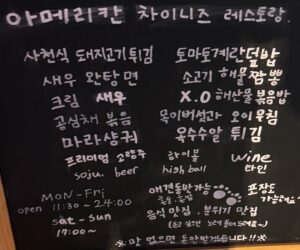 아메리칸 차이니즈 레스토랑.
사천식 돼지고기튀김 토마토계란덮밥
새우 완탕면 소고기 해물짬뽕
크림 새우 X.O 해산물볶음밥
공심채 볶음 목이버섯과 오이무침
마라샹궈 옥수수알 튀김
프리미엄 소맥주 하이볼 wine
soju. beer high ball 와인
MON-Fri
open 11:30~24:00
sat-sun
17:00~
애견동반가능
포장도 가능해요
음식 맛집. 분위기 맛집
※ 맛 없으면 돈안받겠습니다!! ※